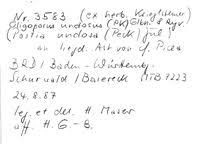 Nr. 3583 (ex herb. Krieglsteiner)
Oligoporus undosus (PK) Gilbn. & Ryv.
(Postia undosa (Peck) Jül.)
an liegd. Ast von cf. Picea
BRD/Baden-Württemb.
Schurwald/Baiereck MTB 7223
24.8.87
leg. et det. H. Maser
aff. H. G-B.